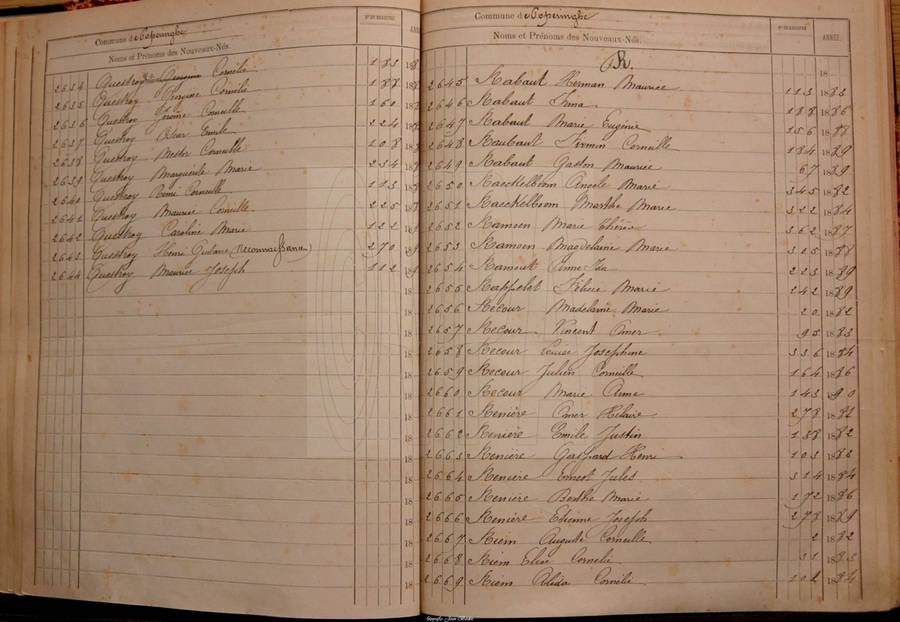 Commune d Poperinghe
Nos DE REGISTRE
Noms et Prénoms des Nouveaux-Nés.
2634 Questroy Cornélie 183
2635 Questroy Cornélie 188
2636 Questroy Jérome Corneille 160
2637 Questroy Oscar Emile 224
2638 Questroy Nestor Corneille 108
2639 Questroy Marguerite Marie 234
2640 Questroy Rémi Corneille
2641 Questroy Maurice Corneille 225
2642 Questroy Caroline Marie 122
2643 Questroy Henri Gustave (reconnaissance) 270
2644 Questroy Maurice Joseph 112
Commune d Poperinghe
Nos DE REGISTRE ANNÉE
Noms et Prénoms des Nouveaux-Nés.
R.
2645 Rabaut Herman Maurice 113 1883
2646 Rabaut Irma 188 1886
2647 Rabaut Marie Eugénie 156 1888
2648 Raubaut Firmin Corneille 184 1889
2649 Rabaut Gaston Maurice 67 1889
2650 Raeckelboom Angele Marie 345 1882
2651 Raeckelboom Marthe Marie 322 1884
2652 Ramoen Marie Thérèse 362 1887
2653 Ramoen Magdelaine Marie 325 1888
2654 Ramout Anne Ida 223 1889
2655 Rappelet Marie 242 1889
2656 Recour Madelaine Marie 20 1882
2657 Recour Vincent Omer 95 1883
2658 Recour Louise Josephine 336 1884
2659 Recour Julien Corneille 164 1886
2660 Recour Marie Anne 143 1890
2661 Renière Omer Hilaire 278
2662 Renière Emile Justin 138 1882
2663 Renière Gaspard Henri 103 1883
2664 Renière Ernest Jules 314 1884
2665 Renière Berthe Marie 172 1886
2666 Renière Etienne Joseph 278 1889
2667 Riem Auguste Corneille 2 1882
2668 Riem Elise Cornélie 31 1883
2669 Riem Alida Cornélie 102 1884